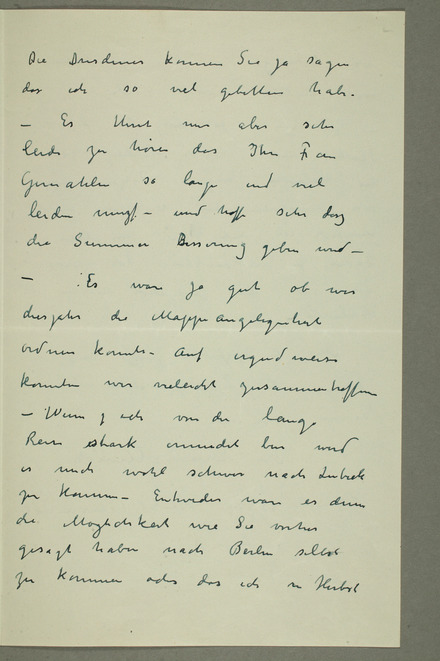 Die Dresdener können Sie ja sagen
das ich so viel gebettem habe.
– Es thut mir aber sehr
leide zu hören das Ihre Frau
Gemahlin so lange und viel
leiden mußt – und hoffe sehr daß
die Summer Besserung geben wird –
– : Es ware ja gut ob wir
diesjahr die Mappe angelegenheit
ordnen konnte. Auf irgend weise
konnten wir vieleicht zusammentreffen
– Wenn ich von die lange
Reise stark ermudet bin wird
es mich wohl schwer nach Lübeck
zu kommen – Entweder ware es denn
die Möglichkeit wie Sie vorher
gesagt haben nach Berlin selbst
zu kommen oder das ich in Herbst